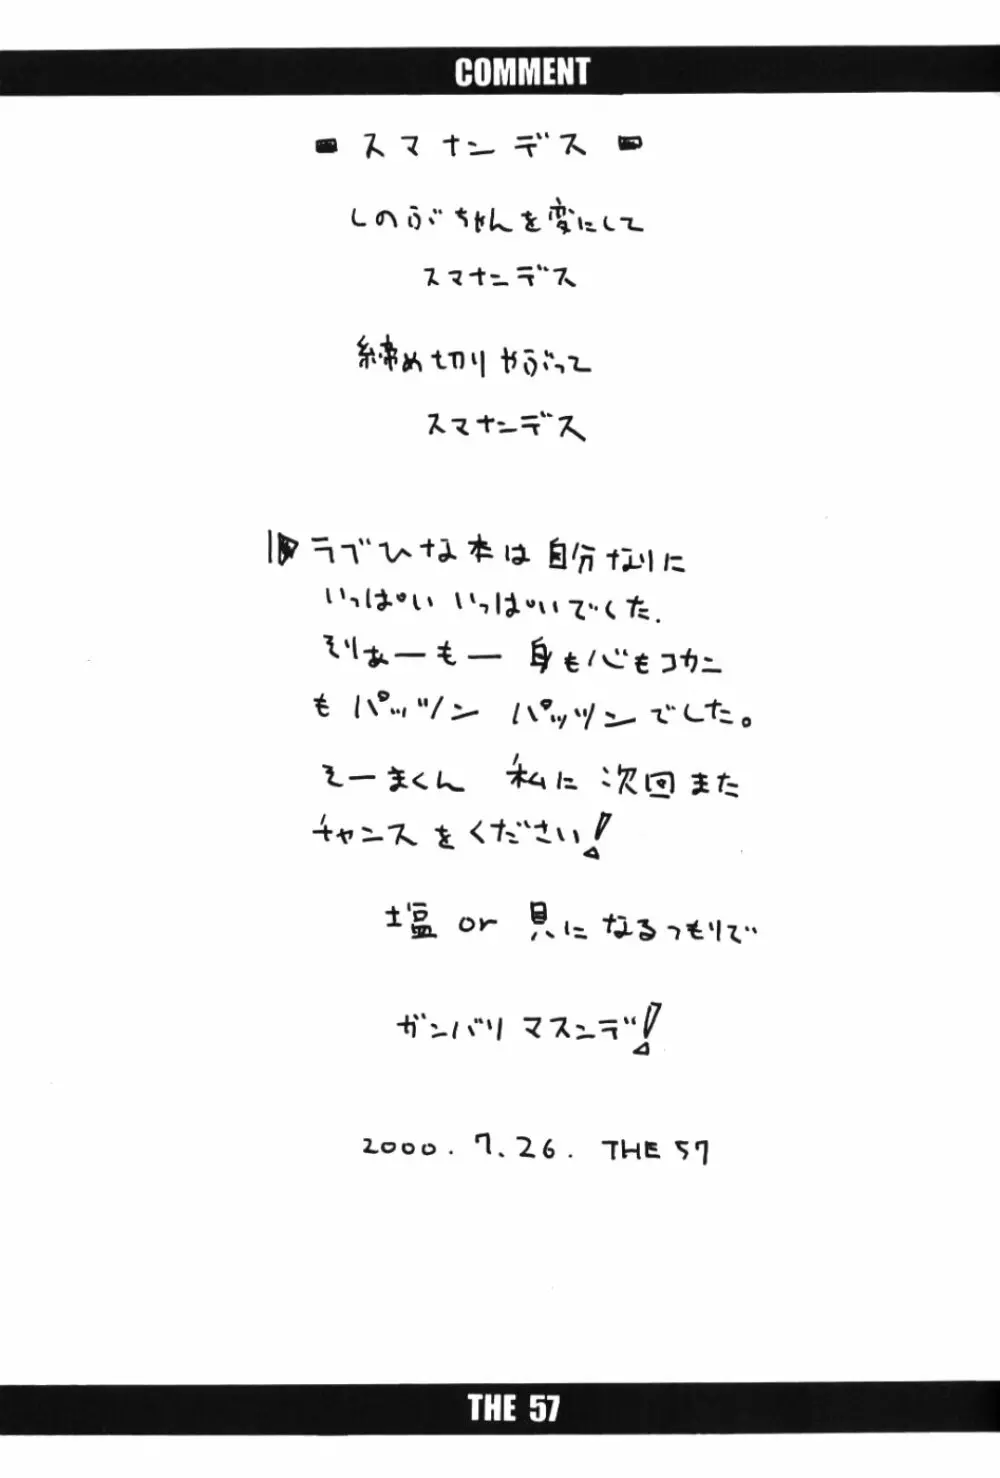 COMMENT
スマナンデス
しのぶちゃんを変にして
スマナンデス
締め切りやぶって
スマナンデス
ラブひな本は自分なりに
いっぱいいっぱいでした.
そりぁーもー 身も心もコカン
も パッツン パッツンでした。
そーまくん 私に次回また
チャンスをください!
塩 or 貝になるつもりで
ガンバリマスンデ!
2000.7.26. THE 57
THE 57